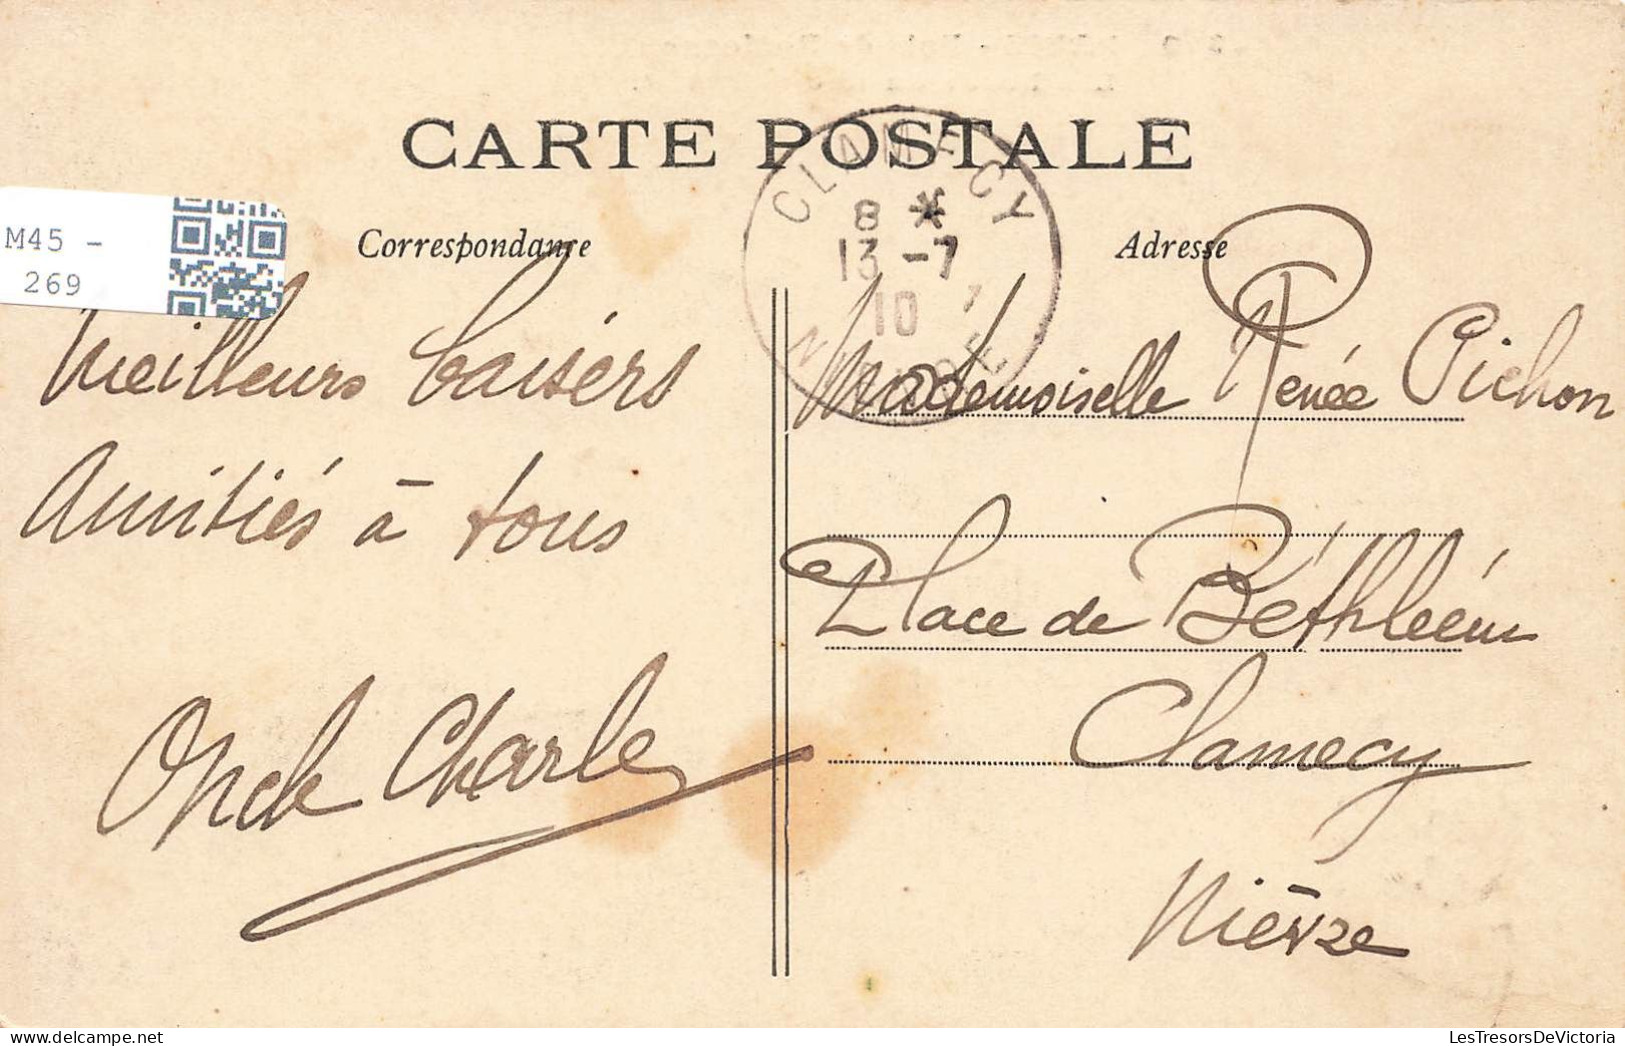 CARTE POSTALE
CLAMECY
8 *
13 -7
10
NIÈVRE
M45 -
269
Correspondance
Meilleurs baisers
Amitiés à tous
Oncle Charles
Adresse
Mademoiselle Renée Pichon
Place de Béthléém
Clamecy
Nièvre
LesTresorsDeVictoria